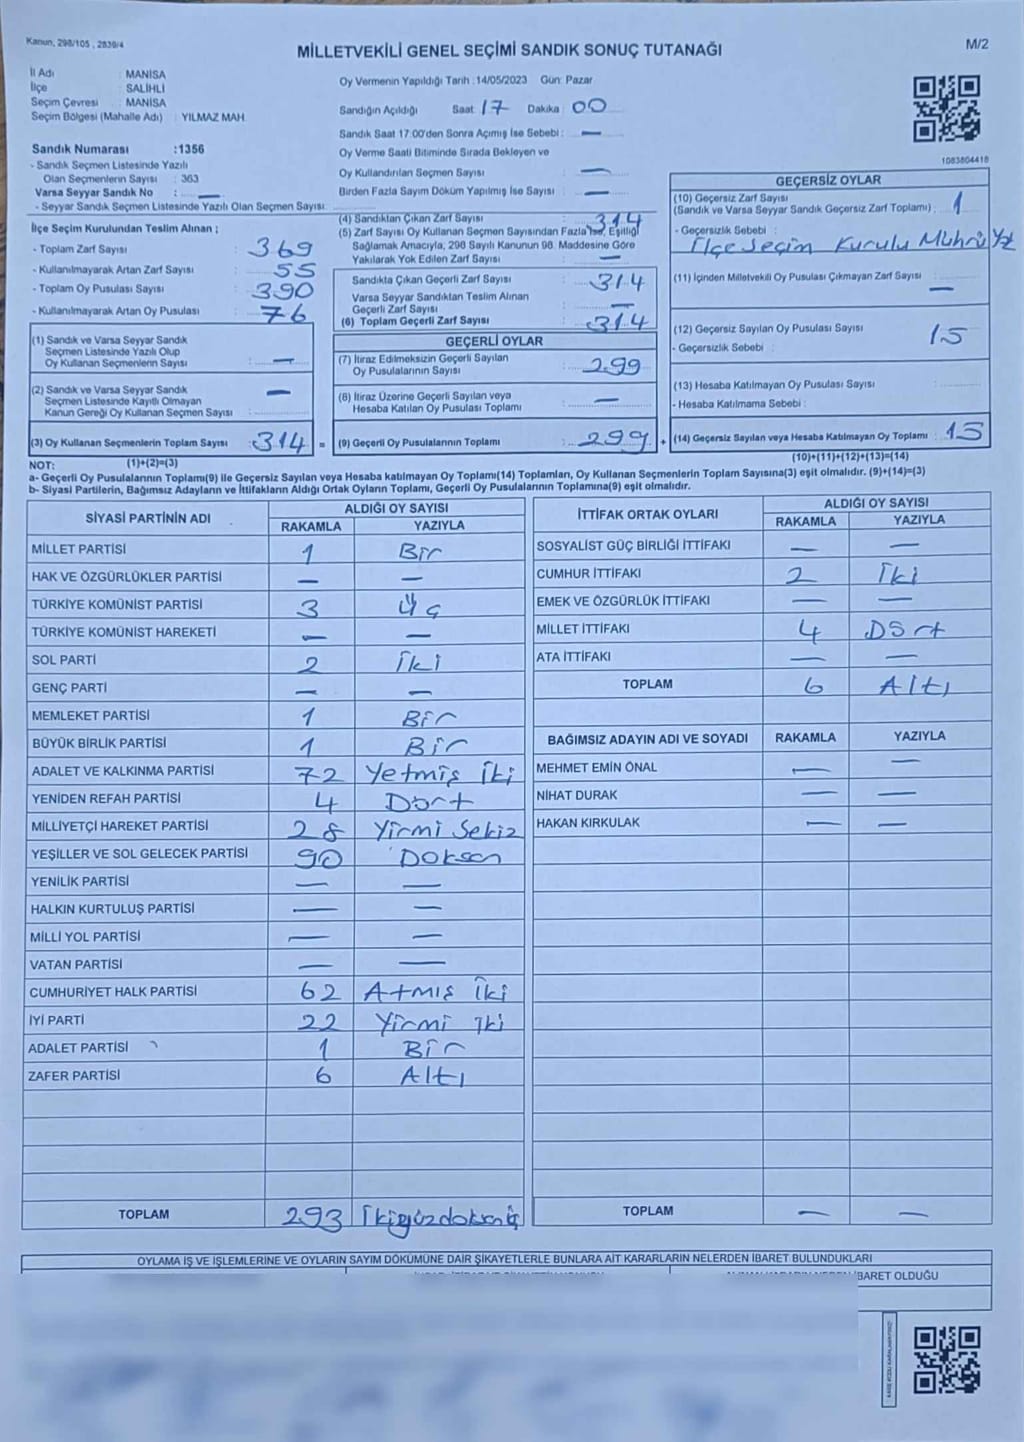 Kanun, 298/105 , 2839/4
MİLLETVEKİLİ GENEL SEÇİMİ SANDIK SONUÇ TUTANAĞI
M/2
İl Adı : MANİSA
İlçe : SALİHLİ
Seçim Çevresi : MANİSA
Seçim Bölgesi (Mahalle Adı) : YILMAZ MAH.
Sandık Numarası :1356
- Sandık Seçmen Listesinde Yazılı
Olan Seçmenlerin Sayısı : 363
Varsa Seyyar Sandık No : —
- Seyyar Sandık Seçmen Listesinde Yazılı Olan Seçmen Sayısı:
İlçe Seçim Kurulundan Teslim Alınan ;
- Toplam Zarf Sayısı : 369
- Kullanılmayarak Artan Zarf Sayısı : 55
- Toplam Oy Pusulası Sayısı : 390
- Kullanılmayarak Artan Oy Pusulası : 76
(1) Sandık ve Varsa Seyyar Sandık
Seçmen Listesinde Yazılı Olup
Oy Kullanan Seçmenlerin Sayısı : —
(2) Sandık ve Varsa Seyyar Sandık —
Seçmen Listesinde Kayıtlı Olmayan
Kanun Gereği Oy Kullanan Seçmen Sayısı :
(3) Oy Kullanan Seçmenlerin Toplam Sayısı : 314 =
Oy Vermenin Yapıldığı Tarih : 14/05/2023 Gün: Pazar
Sandığın Açıldığı Saat: 17 Dakika: 00
Sandık Saat 17:00'den Sonra Açımış İse Sebebi : —
Oy Verme Saati Bitiminde Sırada Bekleyen ve
Oy Kullandırılan Seçmen Sayısı : —
Birden Fazla Sayım Döküm Yapılmış İse Sayısı : —
(4) Sandıktan Çıkan Zarf Sayısı : 314
(5) Zarf Sayısı Oy Kullanan Seçmen Sayısından Fazla İse, Eşitliği
Sağlamak Amacıyla, 298 Sayılı Kanunun 98. Maddesine Göre
Yakılarak Yok Edilen Zarf Sayısı : —
Sandıkta Çıkan Geçerli Zarf Sayısı : 314
Varsa Seyyar Sandıktan Teslim Alınan
Geçerli Zarf Sayısı : —
(6) Toplam Geçerli Zarf Sayısı : 314
GEÇERLİ OYLAR
(7) İtiraz Edilmeksizin Geçerli Sayılan
Oy Pusulalarının Sayısı : 299
(8) İtiraz Üzerine Geçerli Sayılan veya
Hesaba Katılan Oy Pusulası Toplamı : —
(9) Geçerli Oy Pusulalarının Toplamı : 299 +
1083804418
GEÇERSİZ OYLAR
(10) Geçersiz Zarf Sayısı
(Sandık ve Varsa Seyyar Sandık Geçersiz Zarf Toplamı) : 1
- Geçersizlik Sebebi :
İlçe Seçim Kurulu Mührü Yok
(11) İçinden Milletvekili Oy Pusulası Çıkmayan Zarf Sayısı : —
(12) Geçersiz Sayılan Oy Pusulası Sayısı : 15
- Geçersizlik Sebebi :
(13) Hesaba Katılmayan Oy Pusulası Sayısı :
- Hesaba Katılmama Sebebi :
(14) Geçersiz Sayılan veya Hesaba Katılmayan Oy Toplamı : 15
NOT: (1)+(2)=(3) (10)+(11)+(12)+(13)=(14)
a- Geçerli Oy Pusulalarının Toplamı(9) ile Geçersiz Sayılan veya Hesaba katılmayan Oy Toplamı(14) Toplamları, Oy Kullanan Seçmenlerin Toplam Sayısına(3) eşit olmalıdır. (9)+(14)=(3)
b- Siyasi Partilerin, Bağımsız Adayların ve İttifakların Aldığı Ortak Oyların Toplamı, Geçerli Oy Pusulalarının Toplamına(9) eşit olmalıdır.
SİYASİ PARTİNİN ADI ALDIĞI OY SAYISI
RAKAMLA YAZIYLA
MİLLET PARTİSİ 1 Bir
HAK VE ÖZGÜRLÜKLER PARTİSİ — —
TÜRKİYE KOMÜNİST PARTİSİ 3 Üç
TÜRKİYE KOMÜNİST HAREKETİ — —
SOL PARTİ 2 İki
GENÇ PARTİ — —
MEMLEKET PARTİSİ 1 Bir
BÜYÜK BİRLİK PARTİSİ 1 Bir
ADALET VE KALKINMA PARTİSİ 72 Yetmiş İki
YENİDEN REFAH PARTİSİ 4 Dört
MİLLİYETÇİ HAREKET PARTİSİ 28 Yirmi Sekiz
YEŞİLLER VE SOL GELECEK PARTİSİ 90 Doksan
YENİLİK PARTİSİ — —
HALKIN KURTULUŞ PARTİSİ — —
MİLLİ YOL PARTİSİ — —
VATAN PARTİSİ — —
CUMHURİYET HALK PARTİSİ 62 Atmış İki
İYİ PARTİ 22 Yirmi İki
ADALET PARTİSİ 1 Bir
ZAFER PARTİSİ 6 Altı
TOPLAM 293 İkiyüzdoksanüç
İTTİFAK ORTAK OYLARI ALDIĞI OY SAYISI
RAKAMLA YAZIYLA
SOSYALİST GÜÇ BİRLİĞİ İTTİFAKI — —
CUMHUR İTTİFAKI 2 İki
EMEK VE ÖZGÜRLÜK İTTİFAKI — —
MİLLET İTTİFAKI 4 Dört
ATA İTTİFAKI — —
TOPLAM 6 Altı
BAĞIMSIZ ADAYIN ADI VE SOYADI RAKAMLA YAZIYLA
MEHMET EMİN ÖNAL — —
NİHAT DURAK — —
HAKAN KIRKULAK — —
TOPLAM — —
OYLAMA İŞ VE İŞLEMLERİNE VE OYLARIN SAYIM DÖKÜMÜNE DAİR ŞİKAYETLERLE BUNLARA AİT KARARLARIN NELERDEN İBARET BULUNDUKLARI
İBARET OLDUĞU